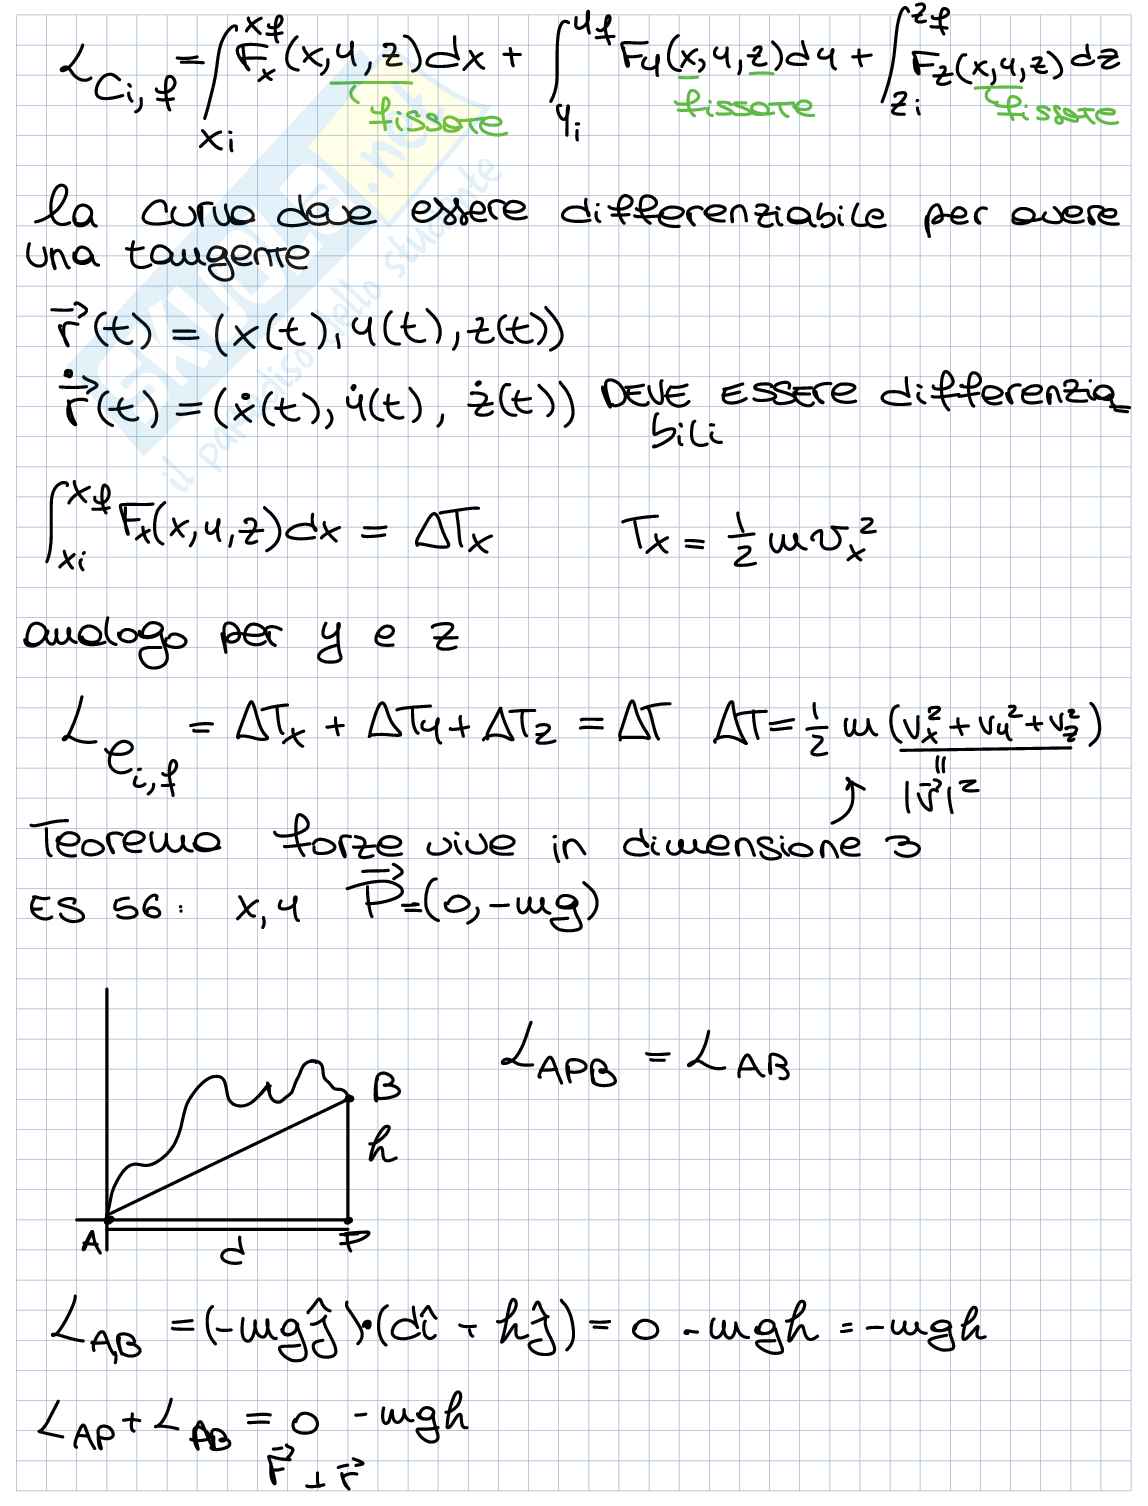 L_{C_{i,f}} = ∫_{x_i}^{x_f} F_x(x,y,z)dx + ∫_{y_i}^{y_f} F_y(x,y,z)dy + ∫_{z_i}^{z_f} F_z(x,y,z)dz
fissate fissate fissate
la curva deve essere differenziabile per avere
una tangente
r⃗(t) = (x(t), y(t), z(t))
ṙ⃗(t) = (ẋ(t), ẏ(t), ż(t)) DEVE ESSERE differenzia
bili
∫_{x_i}^{x_f} F_x(x,y,z)dx = ΔT_x T_x = 1/2 m v_x^2
analogo per y e z
L_{e_{i,f}} = ΔT_x + ΔT_y + ΔT_z = ΔT ΔT = 1/2 m (v_x^2 + v_y^2 + v_z^2)
||
|v⃗|^2
Teorema forze vive in dimensione 3
ES 56: x,y P⃗=(0,-mg)
L_{APB} = L_{AB}
B
h
A d P
L_{A,B} = (-mgĵ)·(dî + hĵ) = 0 - mgh = -mgh
L_{AP} + L_{PB} = 0 - mgh
F⃗ ⊥ r⃗
SKUOLA.net
il paradiso dello studente